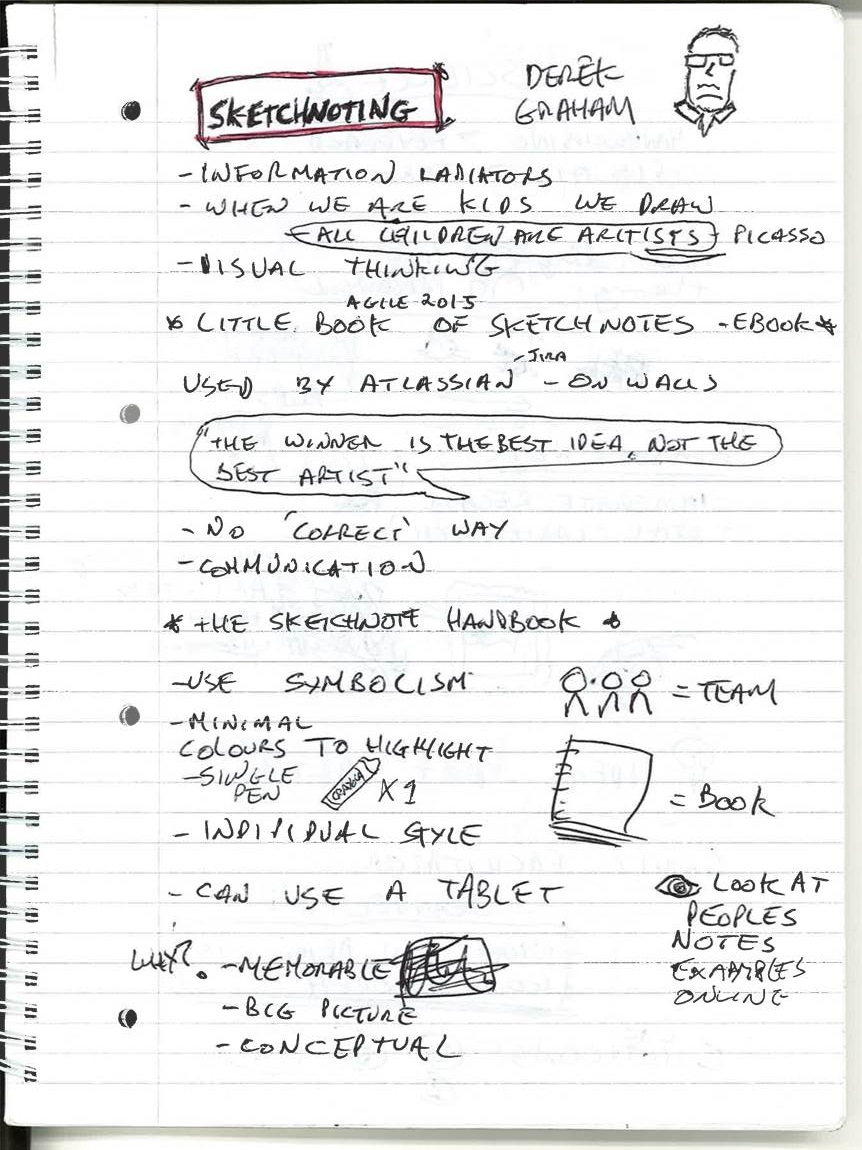 SKETCHNOTING
DEREK
GRAHAM
- INFORMATION RADIATORS
- WHEN WE ARE KIDS WE DRAW
ALL CHILDREN ARE ARTISTS PICASSO
- VISUAL THINKING
AGILE 2015
* LITTLE BOOK OF SKETCHNOTES - EBOOK *
- JIRA
USED BY ATLASSIAN - ON WALLS
"THE WINNER IS THE BEST IDEA, NOT THE
BEST ARTIST"
- NO 'CORRECT' WAY
- COMMUNICATION
* THE SKETCHNOTE HANDBOOK *
- USE SYMBOLISM
= TEAM
- MINIMAL
COLOURS TO HIGHLIGHT
- SINGLE
PEN
CRAYOLA X 1
= BOOK
- INDIVIDUAL STYLE
- CAN USE A TABLET
LOOK AT
PEOPLES
NOTES
EXAMPLES
ONLINE
WHY?
- MEMORABLE
- BIG PICTURE
- CONCEPTUAL